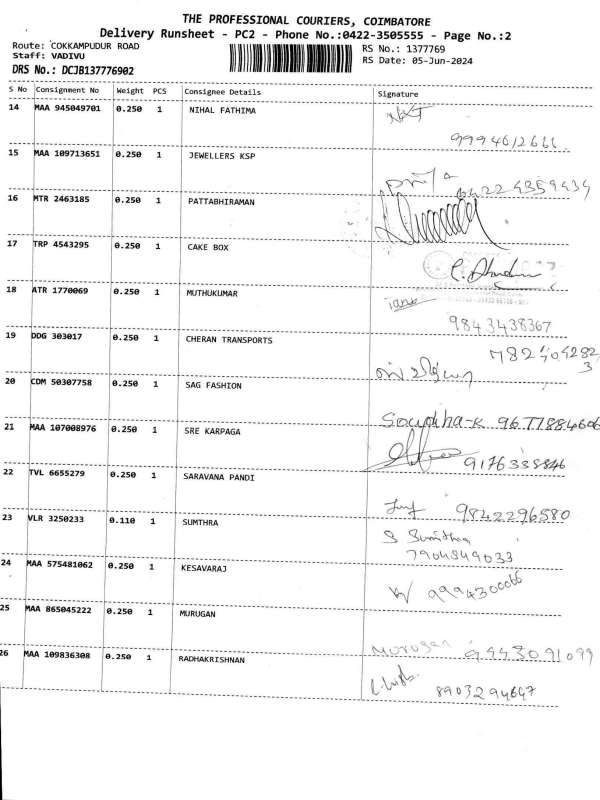 THE PROFESSIONAL COURIERS, COIMBATORE
Delivery Runsheet - PC2 - Phone No.:0422-3505555 - Page No.:2
Route: COKKAMPUDUR ROAD RS No.: 1377769
Staff: VADIVU RS Date: 05-Jun-2024
DRS No.: DCJB137776902
S No Consignment No Weight PCS Consignee Details Signature
14 MAA 945049701 0.250 1 NIHAL FATHIMA
9994612666
15 MAA 109713651 0.250 1 JEWELLERS KSP
04224359434
16 MTR 2463185 0.250 1 PATTABHIRAMAN
17 TRP 4543295 0.250 1 CAKE BOX
18 ATR 1770069 0.250 1 MUTHUKUMAR
9843438367
19 DDG 303017 0.250 1 CHERAN TRANSPORTS
20 CDM 50307758 0.250 1 SAG FASHION
9677884606
21 MAA 107008976 0.250 1 SRE KARPAGA
9176335846
22 TVL 6655279 0.250 1 SARAVANA PANDI
9842296580
23 VLR 3250233 0.110 1 SUMTHRA
S Sumithra
7904849033
24 MAA 575481062 0.250 1 KESAVARAJ
9994300066
25 MAA 865045222 0.250 1 MURUGAN
Murugan 9443091099
26 MAA 109836308 0.250 1 RADHAKRISHNAN
8903294647